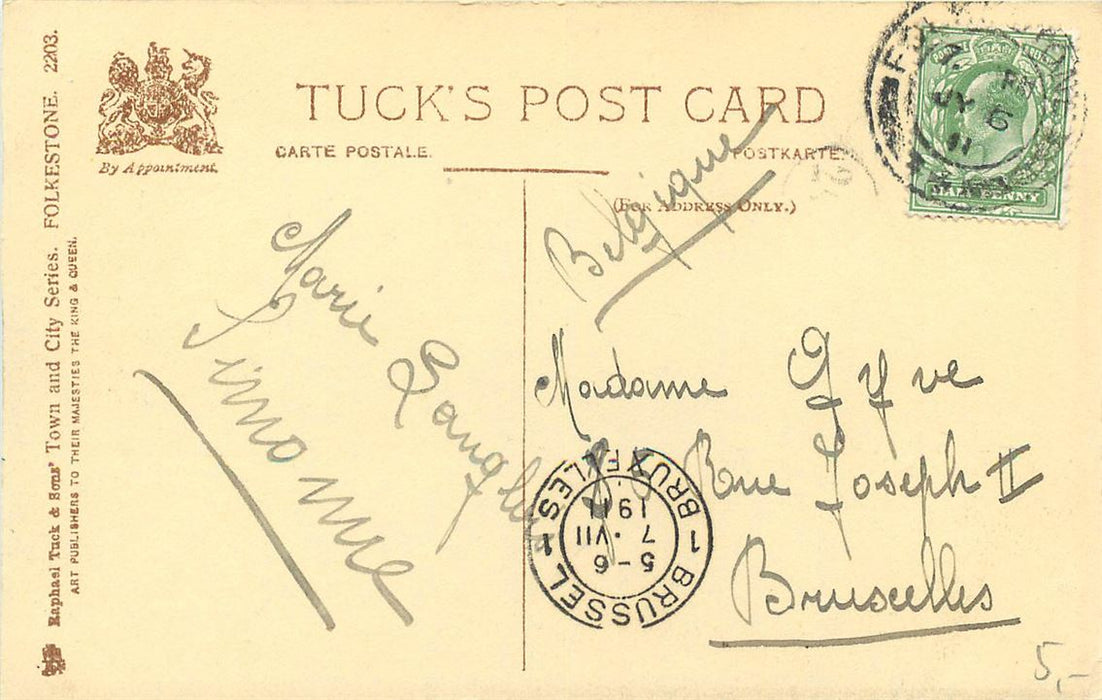 Raphael Tuck & Sons' Town and City Series. FOLKESTONE. 2203.
ART PUBLISHERS TO THEIR MAJESTIES THE KING & QUEEN.
By Appointment.
TUCK'S POST CARD
CARTE POSTALE. POSTKARTE.
(FOR ADDRESS ONLY.)
HALFPENNY
JY 6
11
Belgique
Marie
Simonne
Madame Gyve
Rue Joseph II
Bruxelles
1 BRUSSEL 1 BRUXELLES
5-6
7.VII
1911
5,-